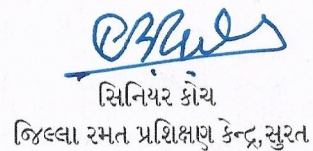 સિનિયર કોચ
જિલ્લા રમત પ્રશિક્ષણ કેન્દ્ર,સુરત